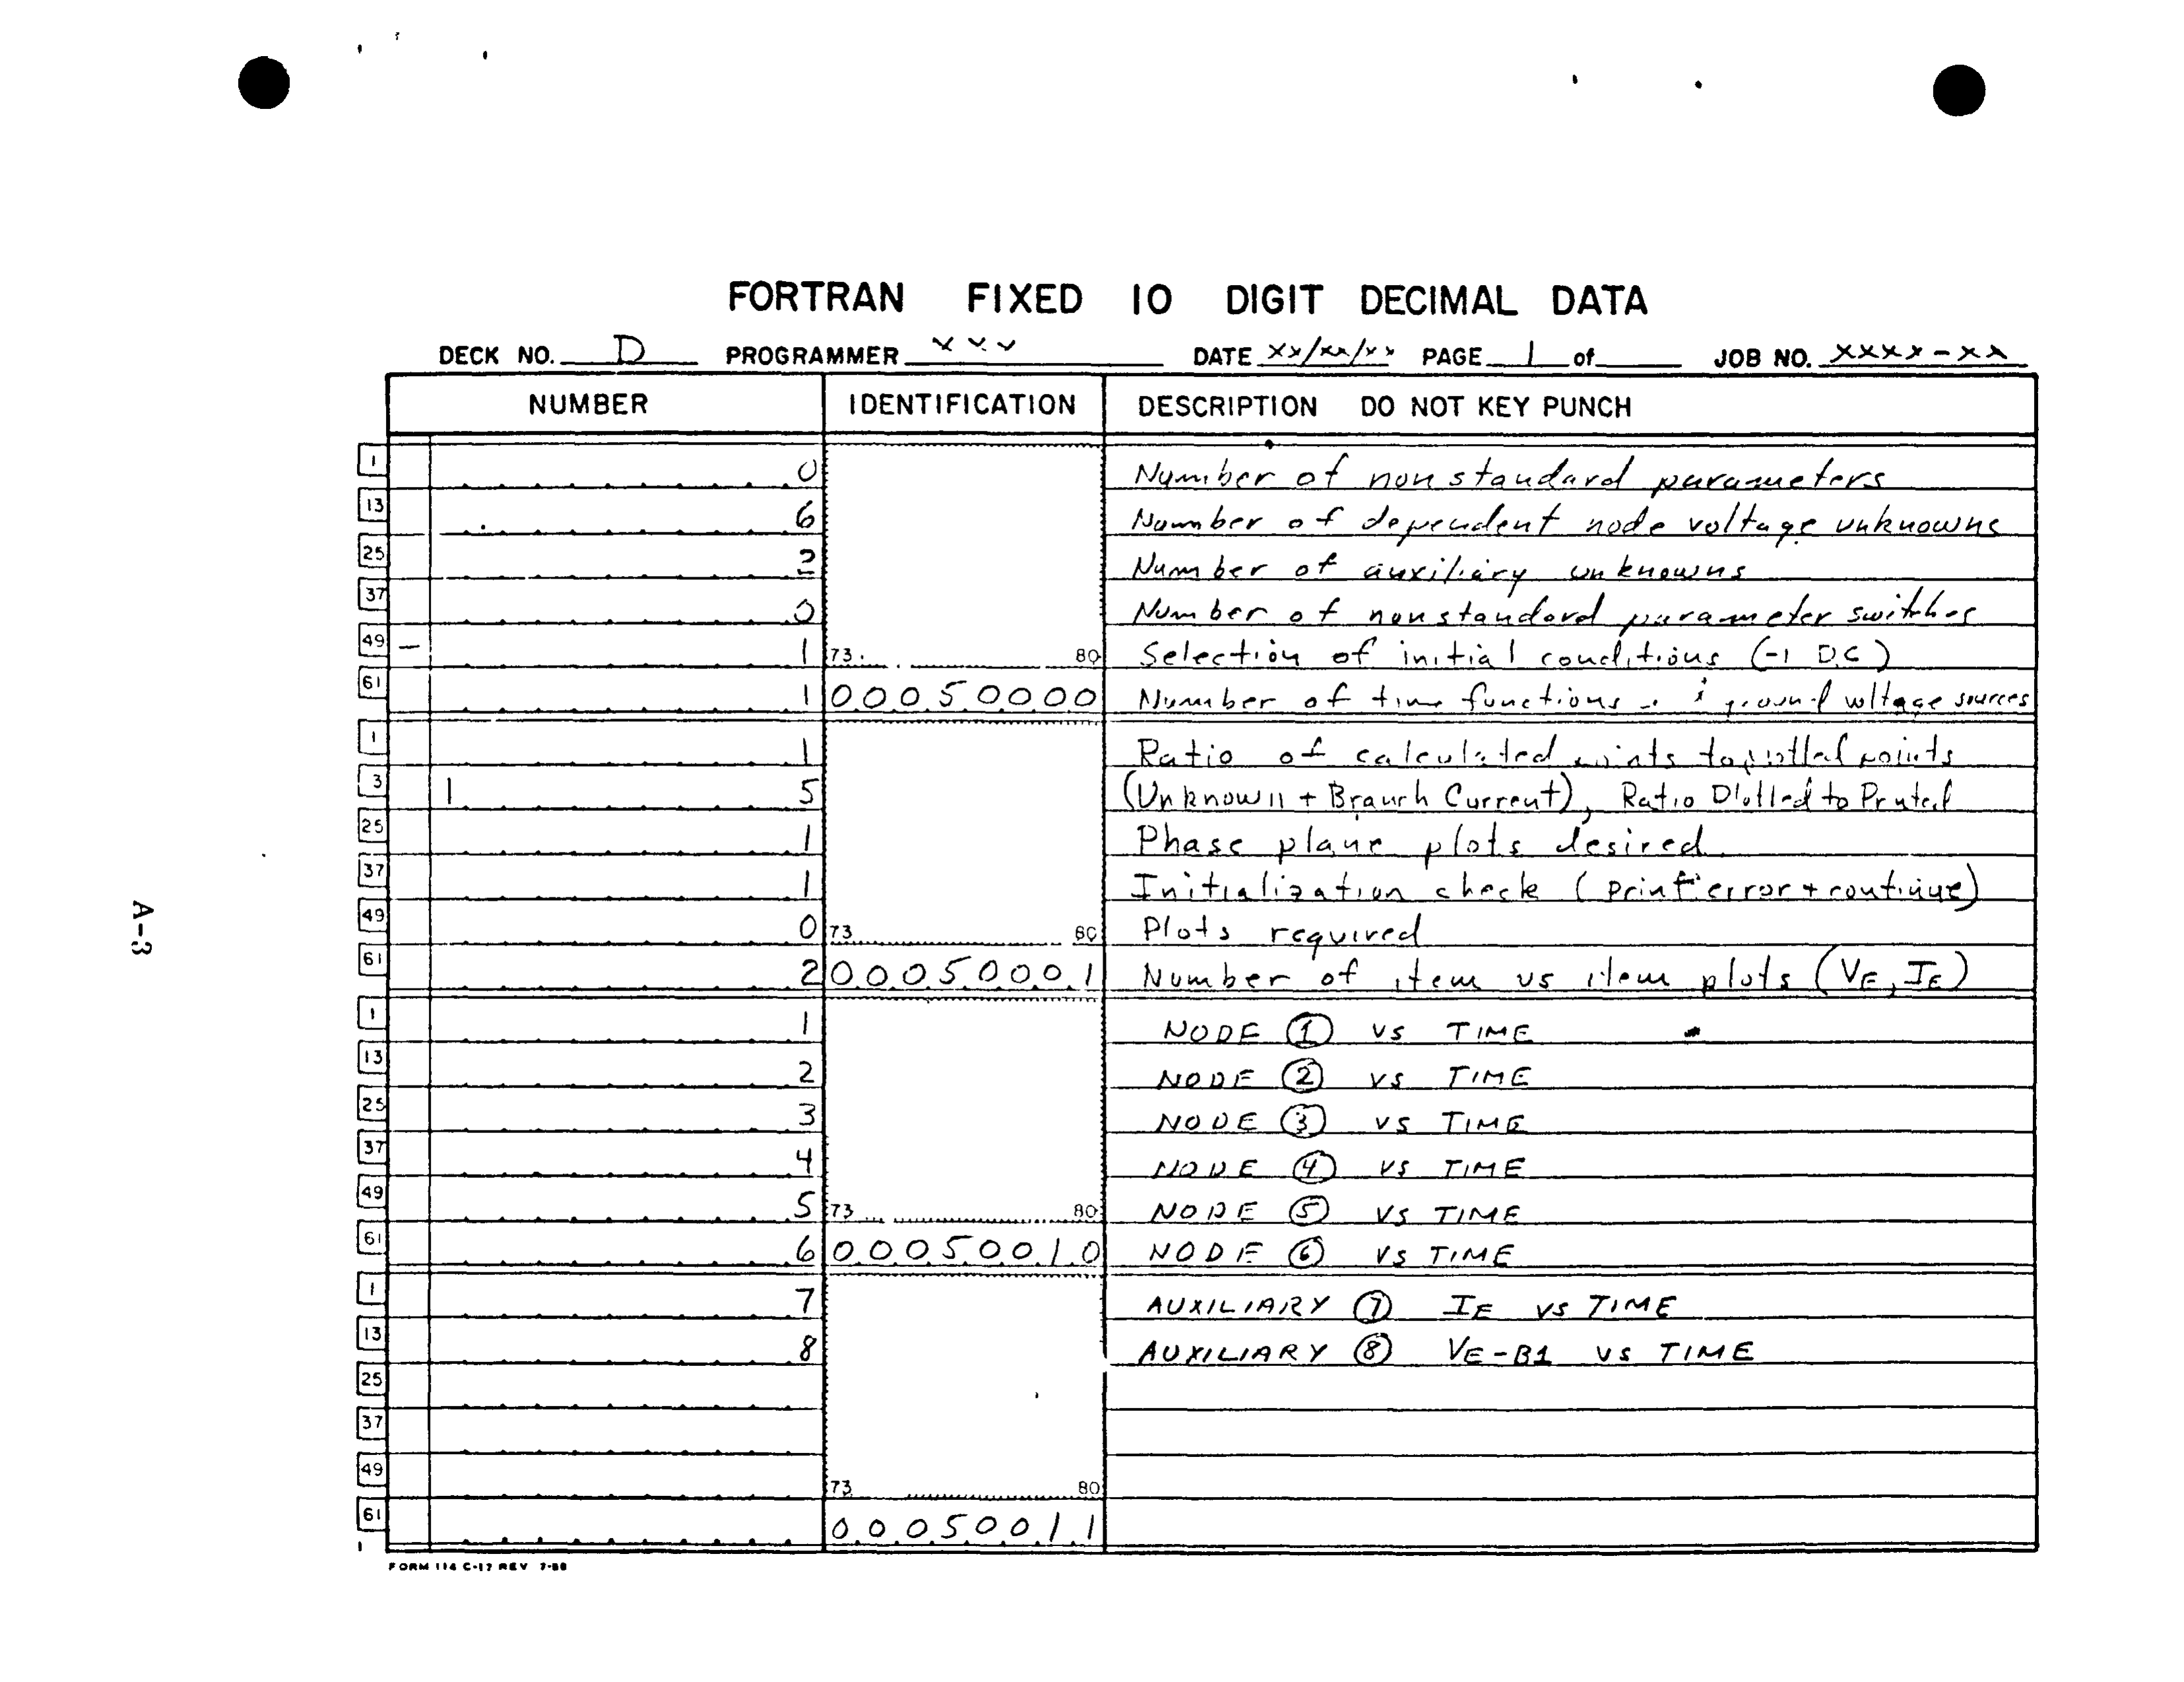 FORTRAN FIXED 10 DIGIT DECIMAL DATA
DECK NO. D PROGRAMMER XXX DATE XX/XX/XX PAGE 1 of JOB NO. XXXX-XX
NUMBER IDENTIFICATION DESCRIPTION DO NOT KEY PUNCH
1 0 Number of nonstandard parameters
13 6 Number of dependent node voltage unknowns
25 2 Number of auxiliary unknowns
37 0 Number of nonstandard parameter switches
49 - 1 73 80 Selection of initial conditions (-1 D.C)
61 1 00050000 Number of time functions ground voltage sources
1 1 Ratio of calculated points to plotted points
3 1 5 (Unknown + Branch Current), Ratio Plotted to Printed
25 1 Phase plane plots desired
37 1 Initialization check (print error + continue)
49 0 73 80 Plots required
61 2 00050001 Number of item vs item plots (VE, IE)
1 1 NODE ① VS TIME
13 2 NODE ② VS TIME
25 3 NODE ③ VS TIME
37 4 NODE ④ VS TIME
49 5 73 80 NODE ⑤ VS TIME
61 6 00050010 NODE ⑥ VS TIME
1 7 AUXILIARY ⑦ IE VS TIME
13 8 AUXILIARY ⑧ VE-B1 VS TIME
25
37
49 73 80
61 00050011
FORM 114 C-17 REV 7-58
A-3